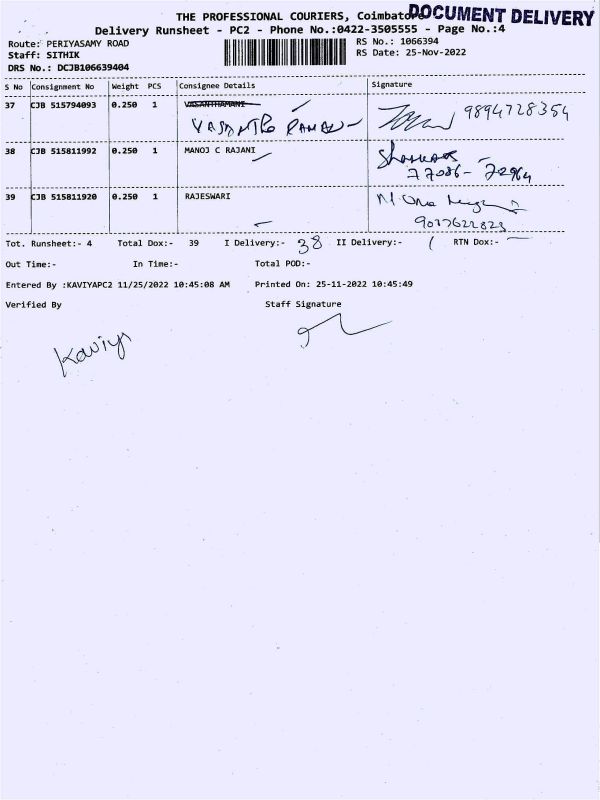 THE PROFESSIONAL COURIERS, Coimbatore
DOCUMENT DELIVERY
Delivery Runsheet - PC2 - Phone No.:0422-3505555 - Page No.:4
Route: PERIYASAMY ROAD
RS No.: 1066394
Staff: SITHIK
RS Date: 25-Nov-2022
DRS No.: DCJB106639404
S No Consignment No Weight PCS Consignee Details Signature
37 CJB 515794093 0.250 1 VASANTHAMANI 9894728354
38 CJB 515811992 0.250 1 MANOJ C RAJANI
77086-72964
39 CJB 515811920 0.250 1 RAJESWARI
Tot. Runsheet:- 4 Total Dox:- 39 I Delivery:- 38 II Delivery:- 1 RTN Dox:- -
Out Time:- In Time:- Total POD:-
Entered By :KAVIYAPC2 11/25/2022 10:45:08 AM Printed On: 25-11-2022 10:45:49
Verified By Staff Signature
Kaviya